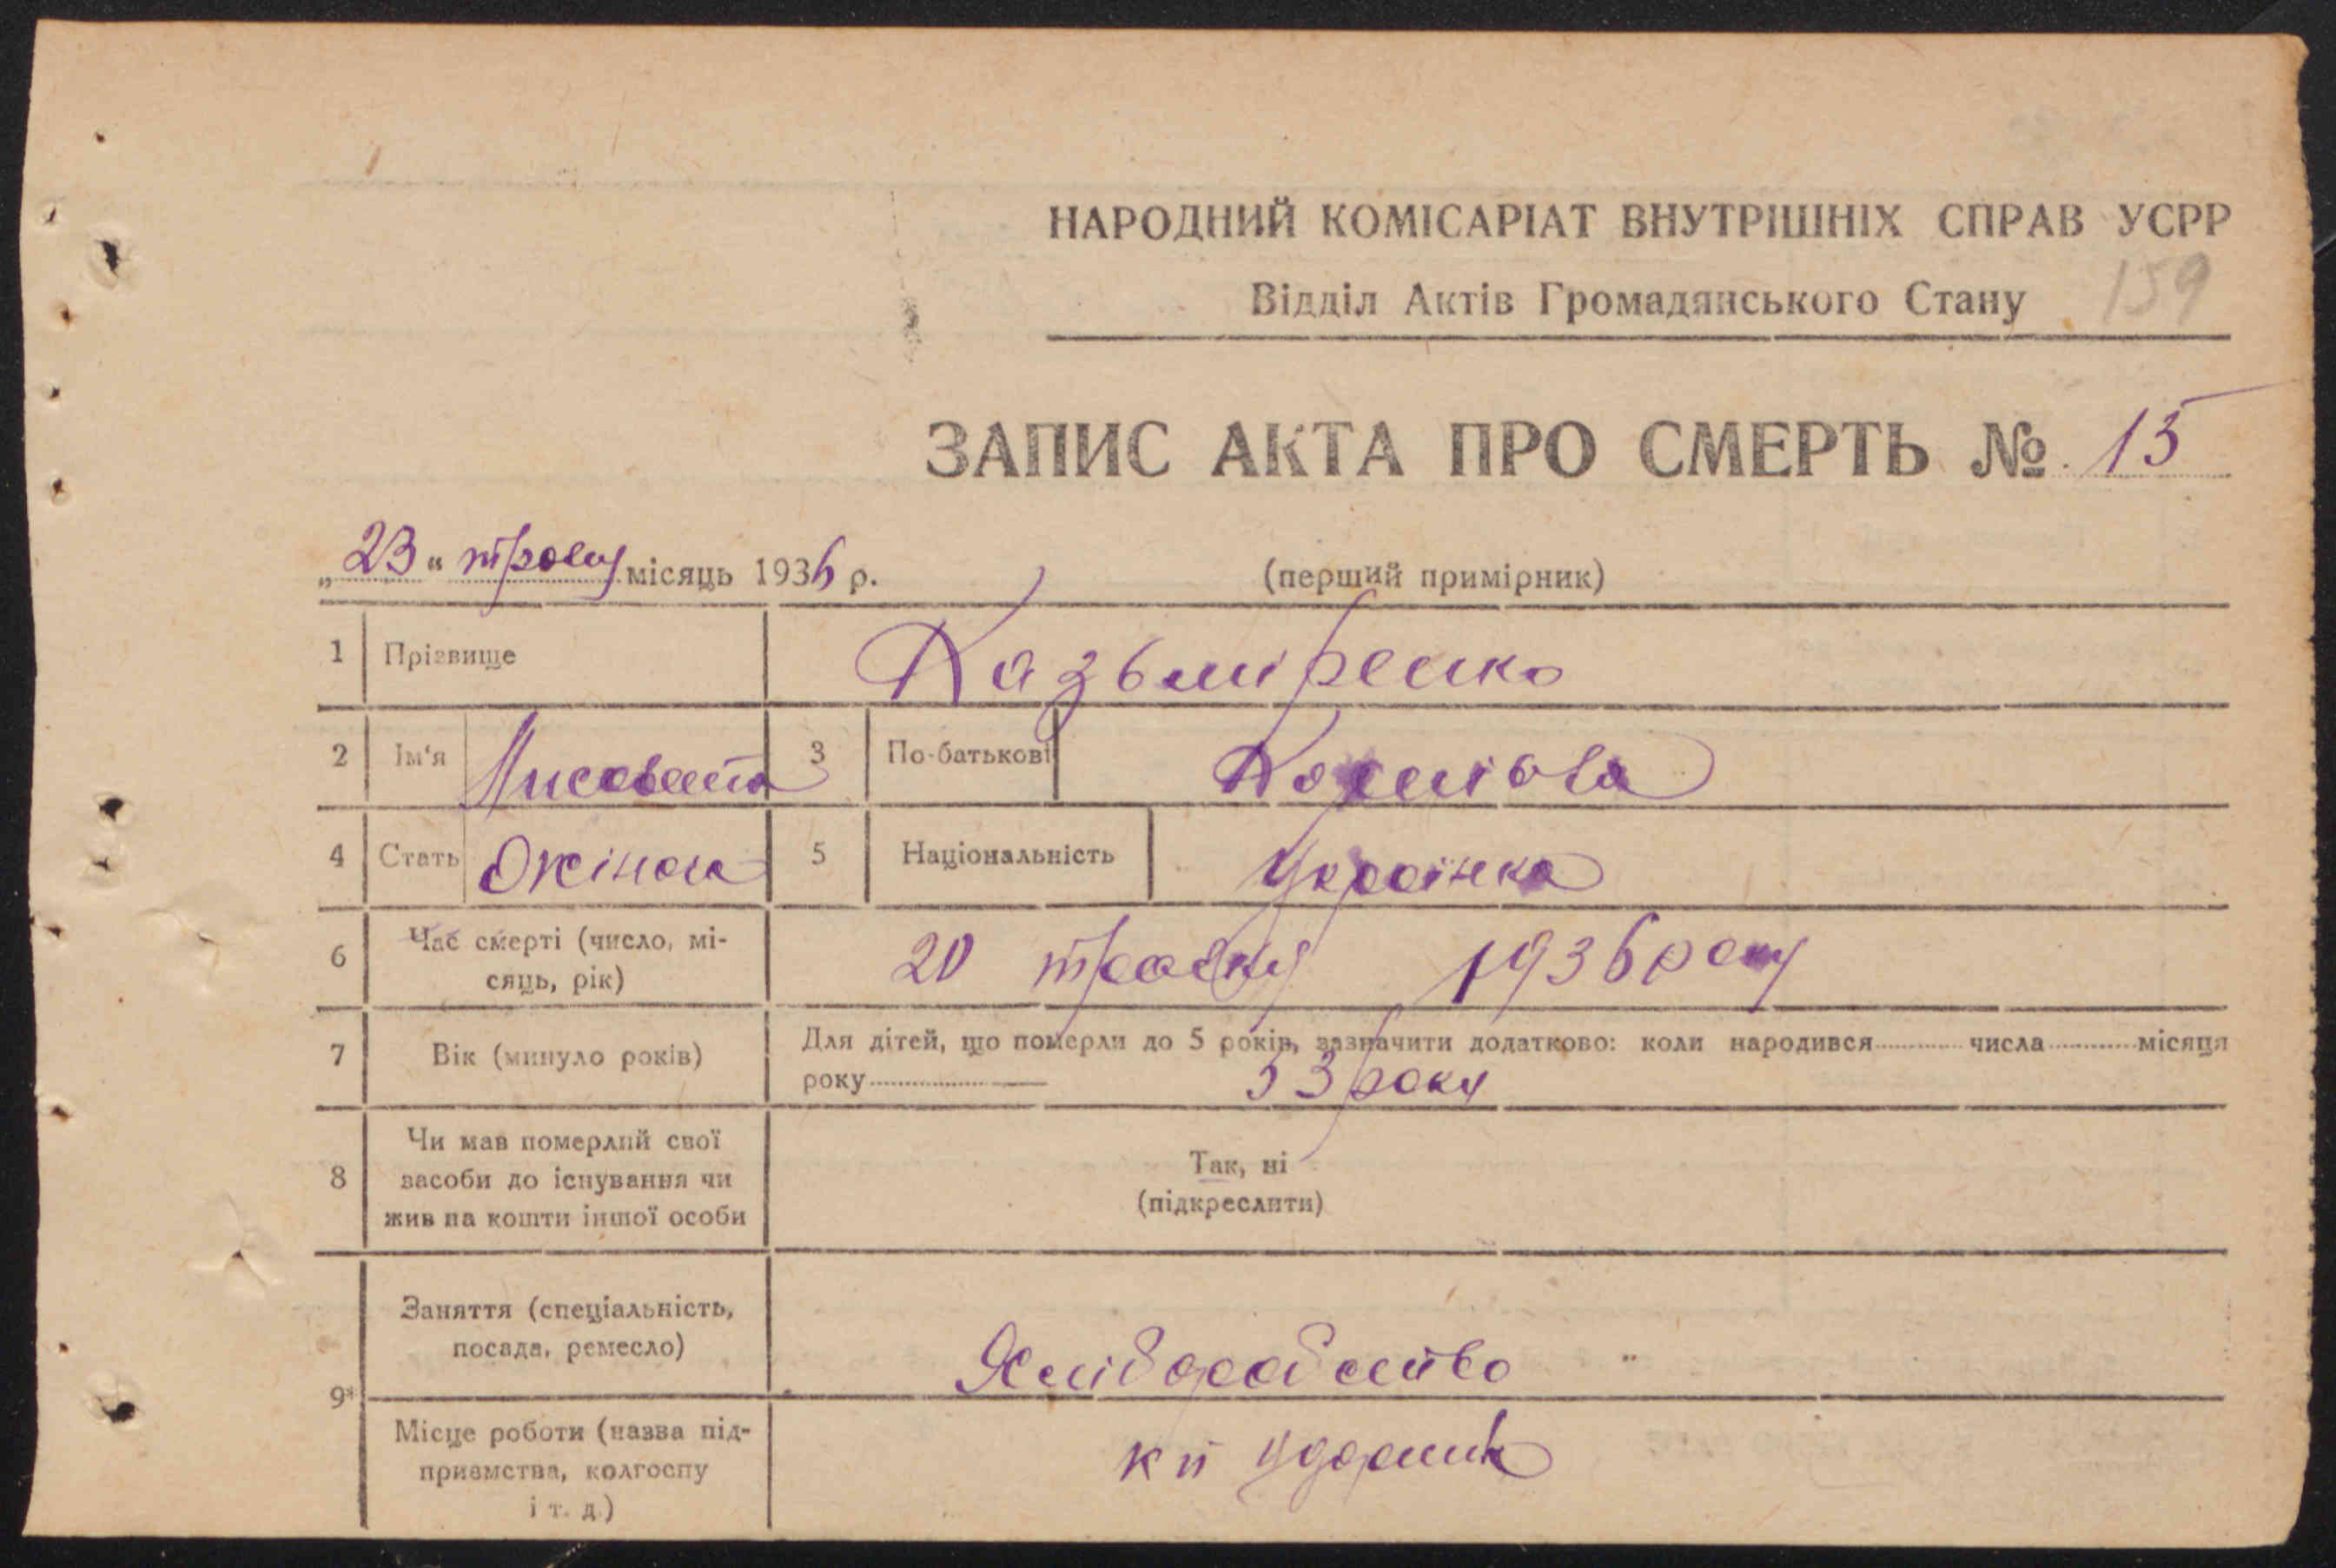 НАРОДНИЙ КОМІСАРІАТ ВНУТРІШНІХ СПРАВ УСРР
Відділ Актів Громадянського Стану 159
ЗАПИС АКТА ПРО СМЕРТЬ № 15
„23“ травня місяць 1936 р. (перший примірник)
1 Прізвище Казьміренко
2 Ім'я Лисавета 3 По-батькові
4 Стать Жіноча 5 Національність Українка
6 Час смерті (число, мі-
сяць, рік) 20 травня 1936 року
7 Вік (минуло років) Для дітей, що померли до 5 років, зазначити додатково: коли народився числа місяця
року 53 року
8 Чи мав померлий свої
засоби до існування чи
жив на кошти іншої особи
Так, ні
(підкреслити)
9* Заняття (спеціальність,
посада, ремесло) Хліборобство
Місце роботи (назва під-
приємства, колгоспу
і т. д.) к п ударник